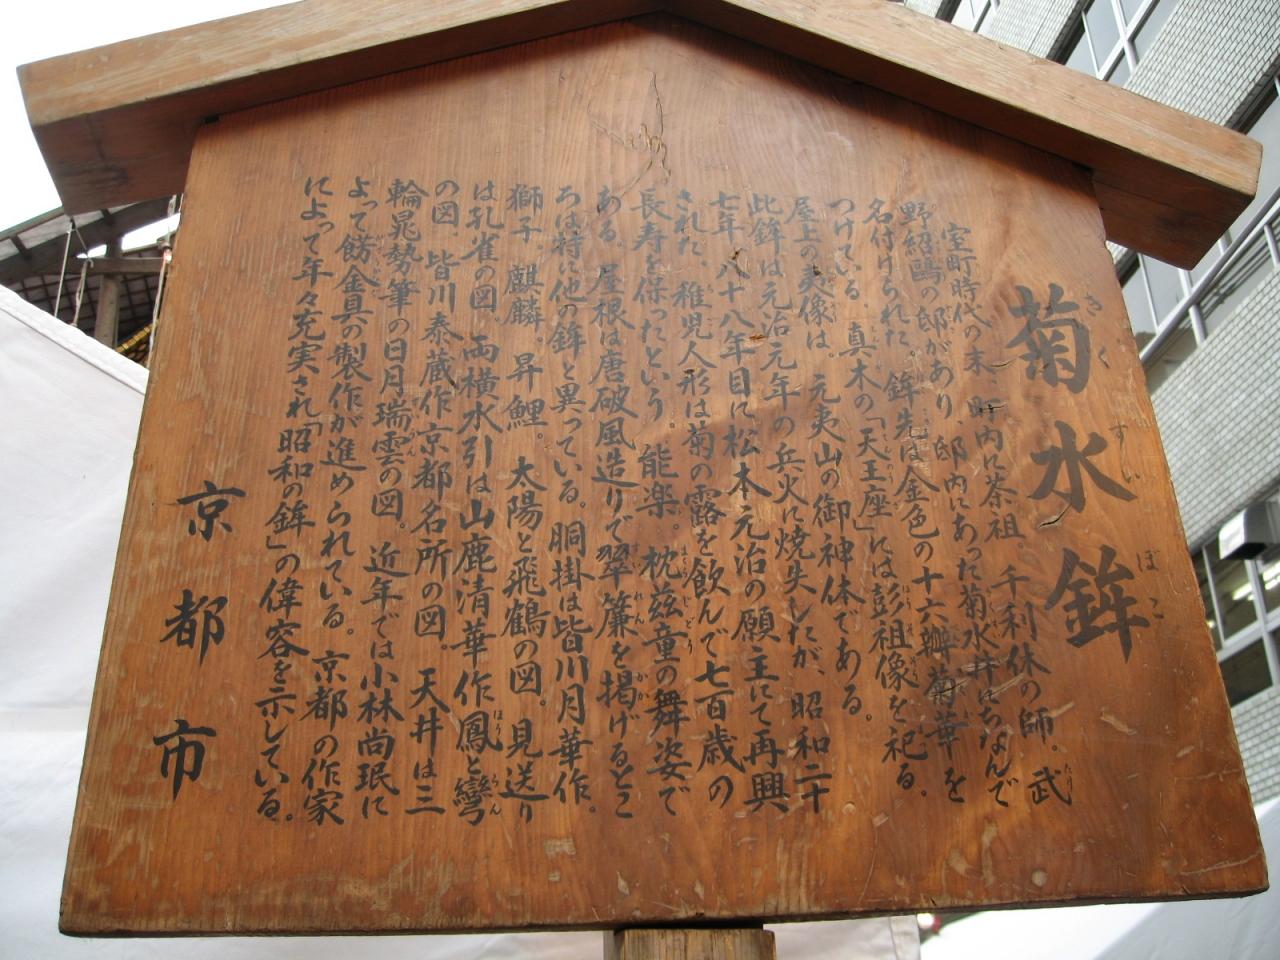 菊水鉾
きくすいぼこ
室町時代の末、町内に茶祖。千利休の師。武
野紹鴎の邸があり、邸内にあった菊水井にちなんで
名付けられた。鉾先は金色の十六瓣菊華を
つけている。真木の「天王座」には彭祖像を祀る。
屋上の夷像は。元夷山の御神体である。
此鉾は元治元年の兵火に焼失したが、昭和二十
七年、八十八年目に松本元治の願主にて再興
された、稚児人形は菊の露を飲んで七百歳の
長寿を保ったという。能楽。枕慈童の舞姿で
ある。屋根は唐破風造りで翠簾を掲げるとこ
ろは特に他の鉾と異っている。胴掛は皆川月華作。
獅子。麒麟。昇鯉。太陽と飛鶴の図。見送り
は孔雀の図。両横水引は山鹿清華作鳳と鸞
の図　皆川泰蔵作京都名所の図。天井は三
輪晁勢筆の日月瑞雲の図。近年では小林尚珉に
よって餝金具の製作が進められている。京都の作家
によって年々充実され「昭和の鉾」の偉容を示している。
京都市